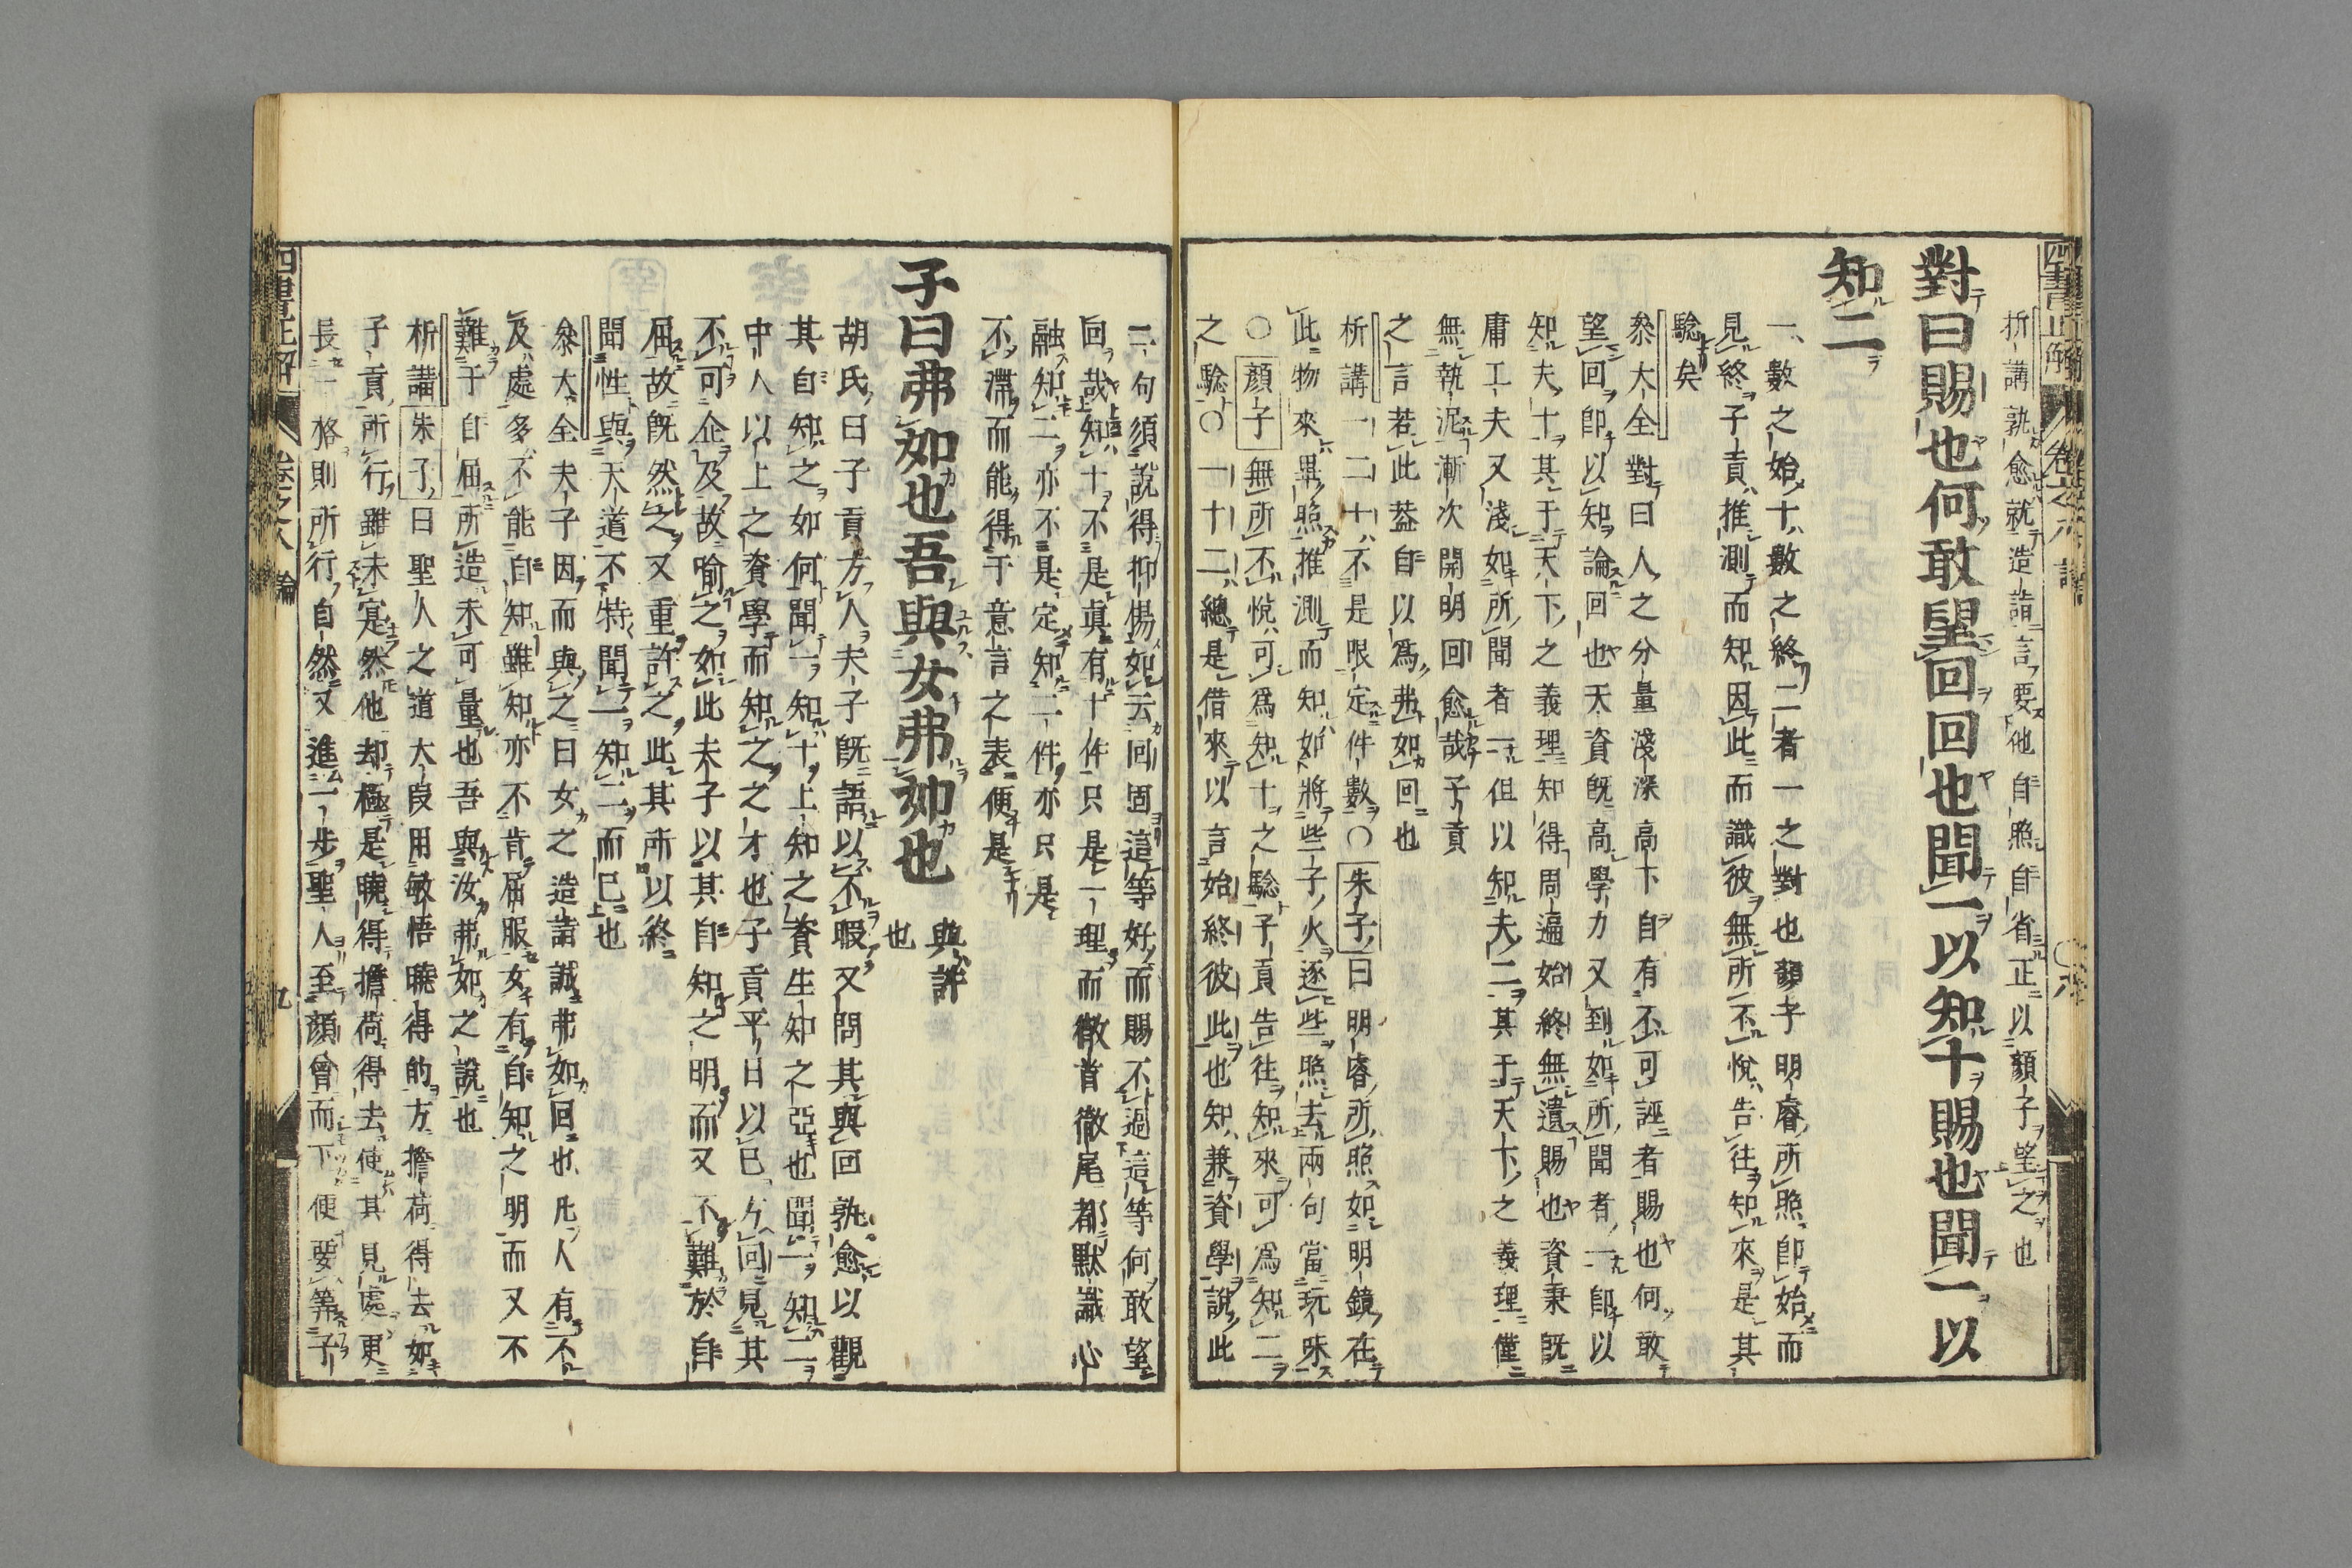 析講孰愈就造詣言要他自照自省正以顏子望之也
對曰賜也何敢望回回也聞一以知十賜也聞一以
知二
一數之始十數之終二者一之對也顏子明睿所照即始而
見終子貢推測而知因此而識彼無所不悅告往知來是其
驗矣
叅大全對曰人之分量淺深高下自有不可誣者賜也何敢
望回即以知論回也天資旣高學力又到如所聞者一即以
知夫十其于天下之義理知得周遍始終無遺賜也資秉旣
庸工夫又淺如所聞者一但以知夫二其于天下之義理僅
無執泥漸次開明回愈哉子貢
之言若此葢自以爲弗如回也
析講一二十不是限定件數〇朱子曰明睿所照如明鏡在
此物來畢照推測而知如將些子火逐些照去兩句當玩味
〇顏子無所不悅可爲知十之驗子貢告往知來可爲知二
之驗〇一十二總是借來以言始終彼此也知兼資學說此
二句須說得抑揚如云回固這等好而賜不過這等何敢望
回哉知十不是真有十件只是一理而徹首徹尾都默識心
融知二亦不是定知二件亦只是
不滯而能得于意言之表便是
子曰弗如也吾與女弗如也
與許
也
胡氏曰子貢方人夫子旣語以不暇又問其與回孰愈以觀
其自知之如何聞一知十上知之資生知之亞也聞一知二
中人以上之資學而知之之才也子貢平日以己方回見其
不可企及故喻之如此夫子以其自知之明而又不難於自
屈故旣然之又重許之此其所以終
聞性與天道不特聞一知二而已也
叅大全夫子因而與之曰女之造詣誠弗如回也凡人有不
及處多不能自知雖知亦不肯屈服女有自知之明而又不
難于自屈所造未可量也吾與汝弗如之說也
析講朱子曰聖人之道大段用敏悟曉得的方擔荷得去如
子貢所行雖未寔然他却極是曉得擔荷得去使其見處更
長一格則所行自然又進一步聖人至顏曾而下便要筭子
四書正解 卷之六 論 六
四書正解 卷之六 論 九